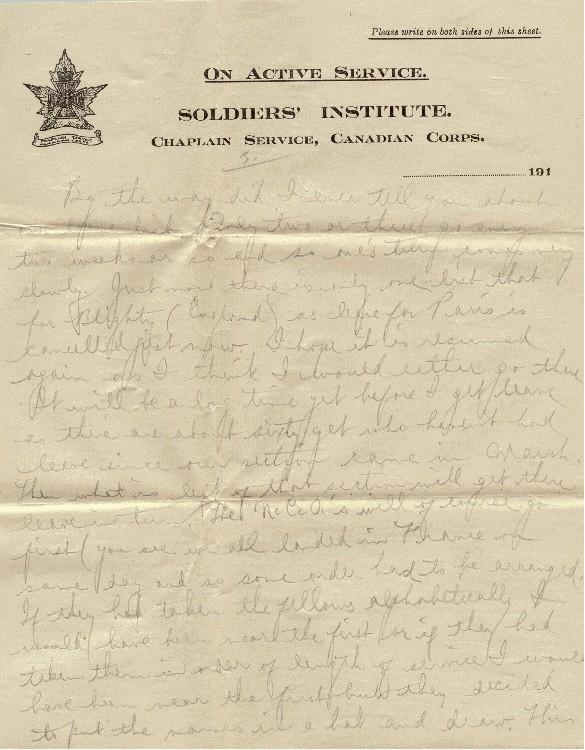 Please write on both sides of this sheet.
On Active Service.
Soldiers' Institute.
Chaplain Service, Canadian Corps.
3.
191
By the way did I ever tell you about
Only two or three go every
two weeks or so and so one's turn comes very
slowly. Just now there is only one list that
for Blighty (England) as leave for Paris is
cancelled just now. I hope it is resumed
again as I think I would rather go there
It will be a long time yet before I get leave
as there are about sixty yet who haven't had
leave since our section came in March.
Then what is left of that section will get there
leave in turn. The N.C.O's will of course go
first (you see we all landed in France on
same day and so some order had to be arranged
If they had taken the fellows alphabetically I
would have been near the first or if they had
taken them in order of length of service I would
have been near the first but they decided
to put the names in a hat and draw. This